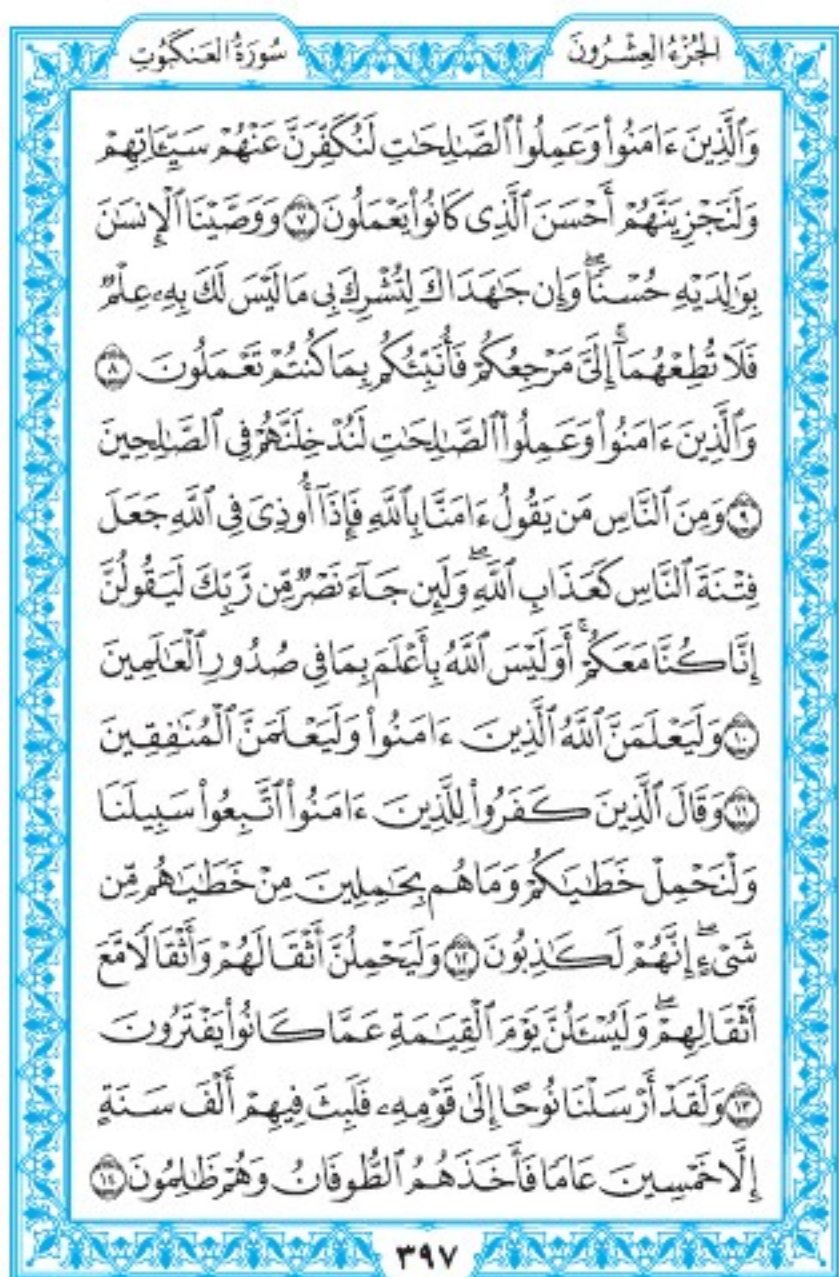 الجُزْءُ العِشْرُونَ
سُورَةُ العَنكَبُوتِ
وَٱلَّذِينَ ءَامَنُوا۟ وَعَمِلُوا۟ ٱلصَّٰلِحَٰتِ لَنُكَفِّرَنَّ عَنْهُمْ سَيِّـَٔاتِهِمْ
وَلَنَجْزِيَنَّهُمْ أَحْسَنَ ٱلَّذِى كَانُوا۟ يَعْمَلُونَ ٧ وَوَصَّيْنَا ٱلْإِنسَٰنَ
بِوَٰلِدَيْهِ حُسْنًاۖ وَإِن جَٰهَدَاكَ لِتُشْرِكَ بِى مَا لَيْسَ لَكَ بِهِۦ عِلْمٌ
فَلَا تُطِعْهُمَآۚ إِلَىَّ مَرْجِعُكُمْ فَأُنَبِّئُكُم بِمَا كُنتُمْ تَعْمَلُونَ ٨
وَٱلَّذِينَ ءَامَنُوا۟ وَعَمِلُوا۟ ٱلصَّٰلِحَٰتِ لَنُدْخِلَنَّهُمْ فِى ٱلصَّٰلِحِينَ
٩ وَمِنَ ٱلنَّاسِ مَن يَقُولُ ءَامَنَّا بِٱللَّهِ فَإِذَآ أُوذِىَ فِى ٱللَّهِ جَعَلَ
فِتْنَةَ ٱلنَّاسِ كَعَذَابِ ٱللَّهِۖ وَلَئِن جَآءَ نَصْرٌ مِّن رَّبِّكَ لَيَقُولُنَّ
إِنَّا كُنَّا مَعَكُمْۚ أَوَلَيْسَ ٱللَّهُ بِأَعْلَمَ بِمَا فِى صُدُورِ ٱلْعَٰلَمِينَ
١٠ وَلَيَعْلَمَنَّ ٱللَّهُ ٱلَّذِينَ ءَامَنُوا۟ وَلَيَعْلَمَنَّ ٱلْمُنَٰفِقِينَ
١١ وَقَالَ ٱلَّذِينَ كَفَرُوا۟ لِلَّذِينَ ءَامَنُوا۟ ٱتَّبِعُوا۟ سَبِيلَنَا
وَلْنَحْمِلْ خَطَٰيَٰكُمْ وَمَا هُم بِحَٰمِلِينَ مِنْ خَطَٰيَٰهُم مِّن
شَىْءٍۖ إِنَّهُمْ لَكَٰذِبُونَ ١٢ وَلَيَحْمِلُنَّ أَثْقَالَهُمْ وَأَثْقَالًا مَّعَ
أَثْقَالِهِمْۖ وَلَيُسْـَٔلُنَّ يَوْمَ ٱلْقِيَٰمَةِ عَمَّا كَانُوا۟ يَفْتَرُونَ
١٣ وَلَقَدْ أَرْسَلْنَا نُوحًا إِلَىٰ قَوْمِهِۦ فَلَبِثَ فِيهِمْ أَلْفَ سَنَةٍ
إِلَّا خَمْسِينَ عَامًا فَأَخَذَهُمُ ٱلطُّوفَانُ وَهُمْ ظَٰلِمُونَ ١٤
٣٩٧